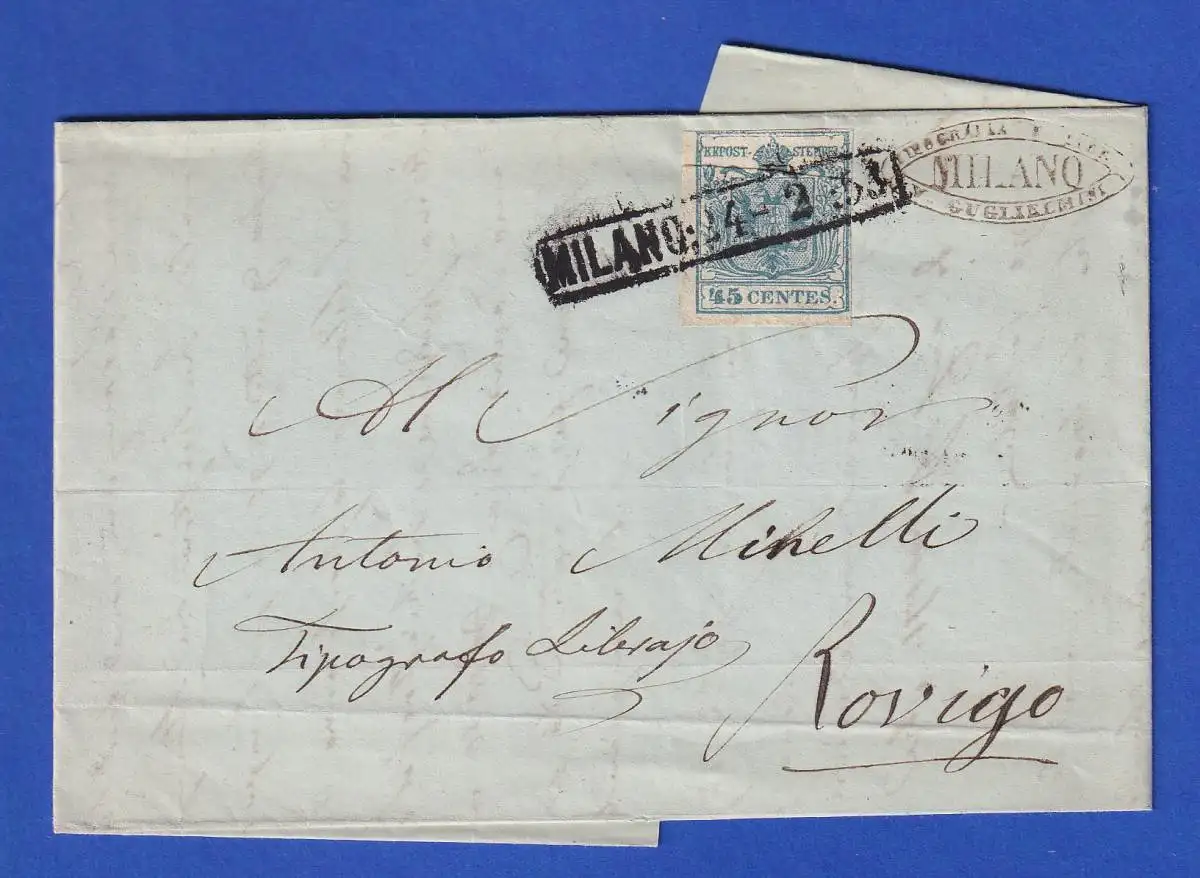 KKPOST-STEMPEL
45 CENTES.
MILANO. 24-2 53.
TIPOGRAFIA
MILANO
GUGLIELMINI
Al Signor
Antonio Minelli
Tipografo Librajo
Rovigo